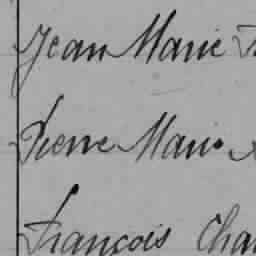 Jean Marie
Pierre Marie
François